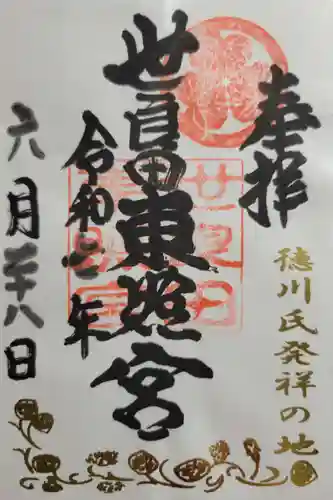 奉拝
徳川氏発祥の地
世良田東照宮
令和二年
六月廿八日